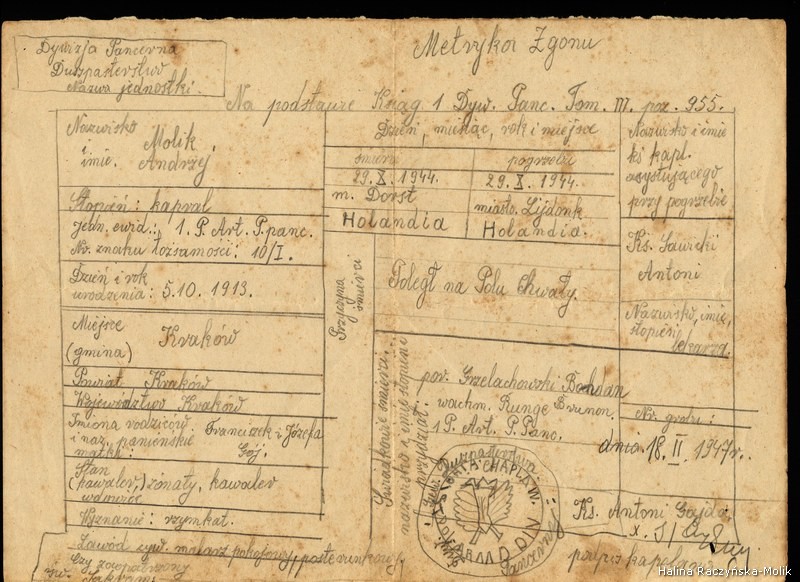 Dywizja Pancerna
Duszpasterstwo
Nazwa jednostki.
Metryka Zgonu
Na podstawie Ksiąg 1 Dyw. Panc. Tom. III. poz. 955.
Nazwisko
i
imię.
Molik
Andrzej
Stopień : kapral
Jedn. ewid.: 1. P. Art. P. panc.
Nr. znaku tożsamości: 10/I.
Dzień i rok
urodzenia : 5.10. 1913.
Miejsce
(gmina)
Kraków
Powiat Kraków
Województwo Kraków
Imiona rodziców
i naz. panieńskie
matki :
Franciszek i Józefa
Gój.
Stan
(kawaler) żonaty, kawaler
wdowiec
Wyznanie : rzymkat.
Zawód cyw. malarz pokojowy, posterunkowy
Czy zaopatrzony
św. Sakram.
Dzień, miesiąc, rok i miejsce
śmierci
29. X. 1944.
m. Dorst
Holandia
pogrzebu
29. X. 1944.
miasto Lijdonk
Holandia.
Przyczyna
śmierci
Poległ na Polu Chwały.
Świadkowie śmierci.
nazwisko i imię stopień
i przydział.
por. Grzelachowski Bohdan
wachm. Runge Brunon.
1 P. Art. P. Panc.
Nazwisko i imię
ks kapl.
asystującego
przy pogrzebie
Ks. Sawicki
Antoni
Nazwisko, imię,
stopień
lekarza.
Nr. grobu :
dnia 18. II. 1947r.
Ks. Antoni Gajda
podpis kapelana
Halina Raczyńska-Molik